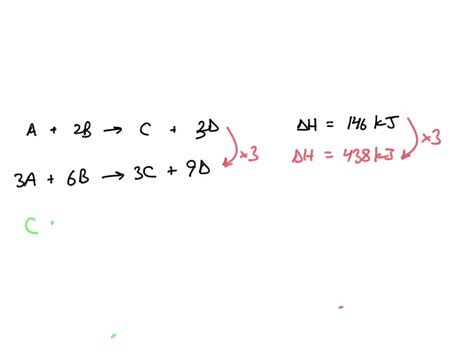 A + 2B → C + 3D ΔH = 146 kJ
×3 ×3
3A + 6B → 3C + 9D ΔH = 438 kJ
C